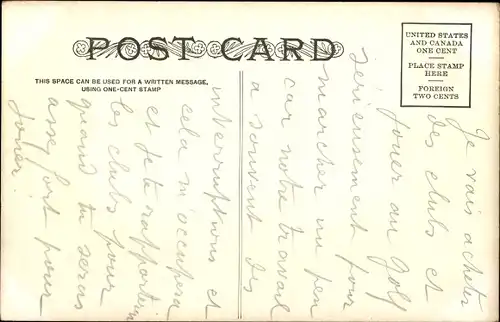 POST CARD
THIS SPACE CAN BE USED FOR A WRITTEN MESSAGE,
USING ONE-CENT STAMP
UNITED STATES
AND CANADA
ONE CENT
PLACE STAMP
HERE
FOREIGN
TWO CENTS
Je vais acheter
des clubs et
jouer au Golf
sérieusement pour
marcher un peu
car notre travail
a souvent des
interruptions et
cela m'occupera
et je te rapporterai
les clubs pour
quand tu seras
assez fort pour
jouer.